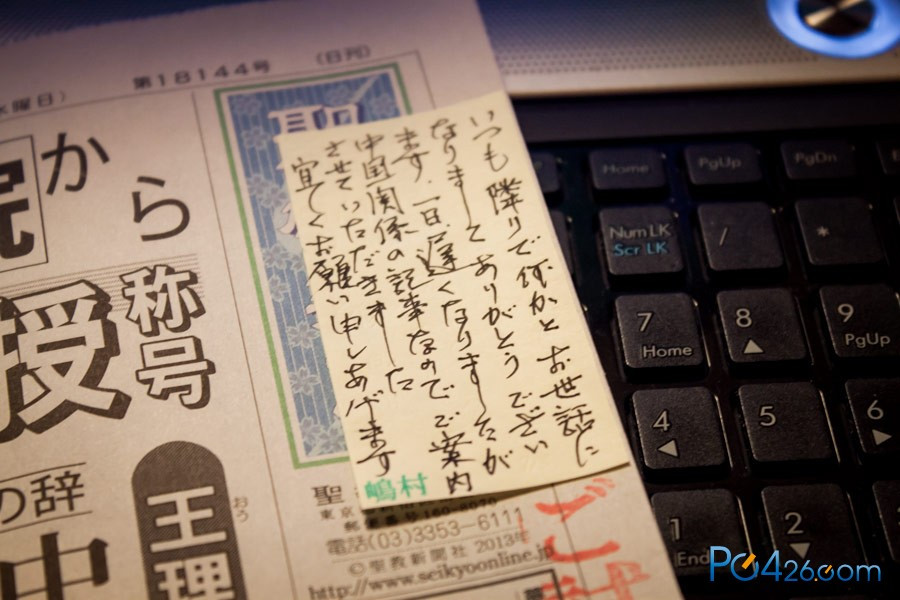 第18144号
(日刊)
水曜日)
から
称号
授
の辞
王理
おう
聖
いつも隣りで何かとお世話に
なりまして ありがとうござい
ます。一日遅くなりましたが
中国関係の記事なのでご案内
させていただきました
宜しくお願い申しあげます
嶋村
聖
東京
郵便番号160-8070
電話(03)3353-6111
©聖教新聞社 2013年
http://www.seikyoonline.jp
Home
PgUp
PgDn
Num LK
Scr LK
/
*
7
Home
8
9
PgUp
4
5
6
1
End
2
PG426.com